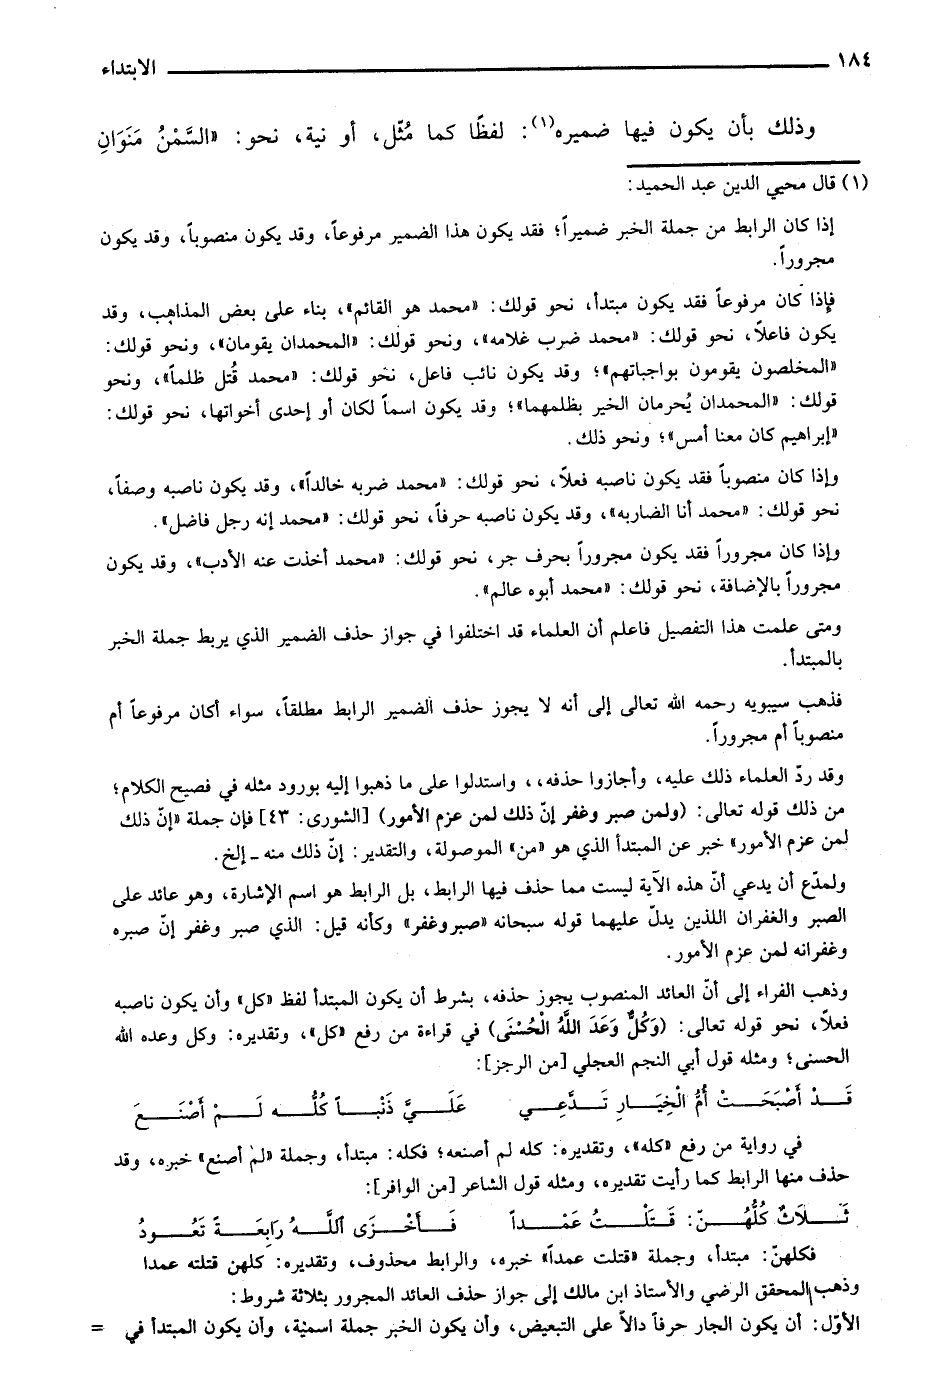 ١٨٤ الابتداء
وذلك بأن يكون فيها ضميره(١): لفظًا كما مُثّل، أو نية، نحو: «السَّمْنُ مَنَوَانِ
(١) قال محيي الدين عبد الحميد:
إذا كان الرابط من جملة الخبر ضميراً؛ فقد يكون هذا الضمير مرفوعاً، وقد يكون منصوباً، وقد يكون
مجروراً.
فإذا كان مرفوعاً فقد يكون مبتدأ، نحو قولك: «محمد هو القائم»، بناء على بعض المذاهب، وقد
يكون فاعلاً، نحو قولك: «محمد ضرب غلامه»، ونحو قولك: «المحمدان يقومان»، ونحو قولك:
«المخلصون يقومون بواجباتهم»؛ وقد يكون نائب فاعل، نحو قولك: «محمد قُتل ظلماً»، ونحو
قولك: «المحمدان يُحرمان الخير بظلمهما»؛ وقد يكون اسماً لكان أو إحدى أخواتها، نحو قولك:
«إبراهيم كان معنا أمس»؛ ونحو ذلك.
وإذا كان منصوباً فقد يكون ناصبه فعلاً، نحو قولك: «محمد ضربه خالداً»، وقد يكون ناصبه وصفاً،
نحو قولك: «محمد أنا الضاربه»، وقد يكون ناصبه حرفاً، نحو قولك: «محمد إنه رجل فاضل».
وإذا كان مجروراً فقد يكون مجروراً بحرف جر، نحو قولك: «محمد أخذت عنه الأدب»، وقد يكون
مجروراً بالإضافة، نحو قولك: «محمد أبوه عالم».
ومتى علمت هذا التفصيل فاعلم أن العلماء قد اختلفوا في جواز حذف الضمير الذي يربط جملة الخبر
بالمبتدأ.
فذهب سيبويه رحمه الله تعالى إلى أنه لا يجوز حذف الضمير الرابط مطلقاً، سواء أكان مرفوعاً أم
منصوباً أم مجروراً.
وقد ردّ العلماء ذلك عليه، وأجازوا حذفه،، واستدلوا على ما ذهبوا إليه بورود مثله في فصيح الكلام؛
من ذلك قوله تعالى: (ولمن صبر وغفر إنّ ذلك لمن عزم الأمور) [الشورى: ٤٣] فإن جملة «إنّ ذلك
لمن عزم الأمور» خبر عن المبتدأ الذي هو «من» الموصولة، والتقدير: إنّ ذلك منه - إلخ.
ولمدّع أن يدعي أنّ هذه الآية ليست مما حذف فيها الرابط، بل الرابط هو اسم الإشارة، وهو عائد على
الصبر والغفران اللذين يدلّ عليهما قوله سبحانه «صبر وغفر» وكأنه قيل: الذي صبر وغفر إنّ صبره
وغفرانه لمن عزم الأمور.
وذهب الفراء إلى أنّ العائد المنصوب يجوز حذفه، بشرط أن يكون المبتدأ لفظ «كل» وأن يكون ناصبه
فعلاً، نحو قوله تعالى: (وَكُلٌّ وَعَدَ اللَّهُ الْحُسْنَى) في قراءة من رفع «كل»، وتقديره: وكل وعده الله
الحسنى؛ ومثله قول أبي النجم العجلي [من الرجز]:
قَـدْ أَصْبَحَـتْ أُمُّ الْخِيَـارِ تَـدَّعِـي عَلَـيَّ ذَنْبـاً كُلُّـه لَـمْ أَصْنَـعَ
في رواية من رفع «كله»، وتقديره: كله لم أصنعه؛ فكله: مبتدأ، وجملة «لم أصنع» خبره، وقد
حذف منها الرابط كما رأيت تقديره، ومثله قول الشاعر [من الوافر]:
ثَـلاَثٌ كُلُّهُـنّ: قَتَلْـتُ عَمْـداً فَـأَخْـزَى اللَّـهُ رَابِعَـةً تَعُـودُ
فكلهنّ: مبتدأ، وجملة «قتلت عمداً» خبره، والرابط محذوف، وتقديره: كلهن قتلته عمدا
وذهب المحقق الرضي والأستاذ ابن مالك إلى جواز حذف العائد المجرور بثلاثة شروط:
الأوّل: أن يكون الجار حرفاً دالاً على التبعيض، وأن يكون الخبر جملة اسميّة، وأن يكون المبتدأ في =